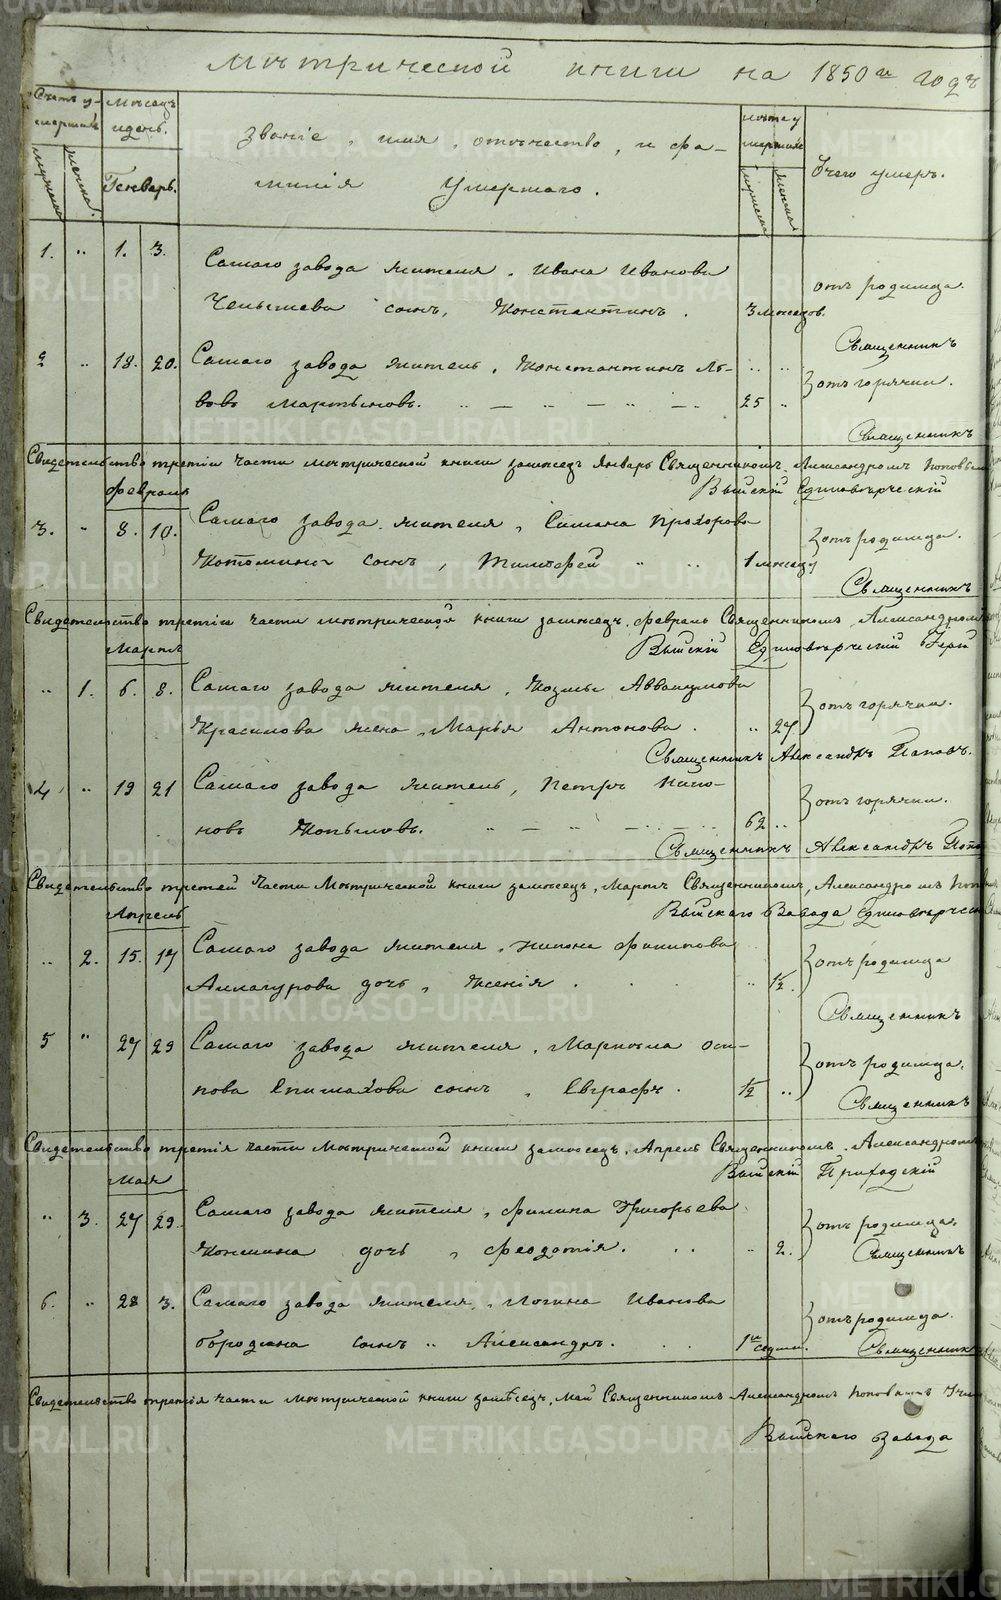 Метрической книги на 1850й годъ
Счетъ умершихъ
Месяцъ и день.
Званiе, имя, отчество, и фа-
милiя Умершаго.
Лета умершаго
Отчего умеръ.
мужеска
женска.
Генварь.
мужеска
женска
1. " 1. 3. Самаго завода жителя, Ивана Иванова
Челышева сынъ, Константинъ. 3 месяцов. отъ родимца.
Священникъ
2 " 18. 20. Самаго завода житель, Константинъ Ль-
вовъ Мартьяновъ. 25 " отъ горячки.
Священникъ
Свидетельство третiи части метрической книги замесяцъ Январь Священникомъ Александромъ Поповымъ
Выйскiй Единоверческiй
февраля
3. " 8. 10. Самаго завода жителя, Симана Прохорова
сынъ, Тимофей " " 1 месяцъ отъ родимца.
Священникъ
Свидетельство третiи части метрической книги замесяцъ, февраль Священникомъ Александромъ
Выйскiй Единоверческiй
Марта
" 1. 6. 8. Самаго завода жителя, Козмы Аввакумова
Красилова жена, Марья Антонова. " 27 отъ горячки.
Священникъ Александръ Поповъ.
4 " 19 21 Самаго завода житель, Петръ Нико-
новъ Копыловъ. 62 " отъ горячки.
Священникъ Александръ
Свидетельство третей части Метрической книги замесяцъ, Мартъ Священникомъ, Александромъ
Выйскаго Завода
Апрель
" 2. 15. 17 Самаго завода жителя, Никона Филипова
дочь, Ксенiя. " 1/2. отъ родимца
Священникъ
5 " 27 29 Самаго завода жителя, Маркела Оси-
пова Епимахова сынъ, Евграфъ. 1/2 " отъ родимца.
Священникъ
Свидетельство третiя части Метрической книги замесяцъ, Апрель Священникомъ Александромъ
Выйскiй Приходскiй
Мая
" 3. 27 29. Самаго завода жителя, Филипа Григорьева
дочь, Феодотiя. " 2. отъ родимца.
Священникъ
6. " 28 3. Самаго завода жителя, Логина Иванова
Бородина сынъ " Александръ. отъ родимца.
Священникъ
Свидетельство третiя части метрической книги замесяцъ, Май Священникомъ Александромъ Поповымъ
Выйскаго завода
METRIKI.GASO-URAL.RU